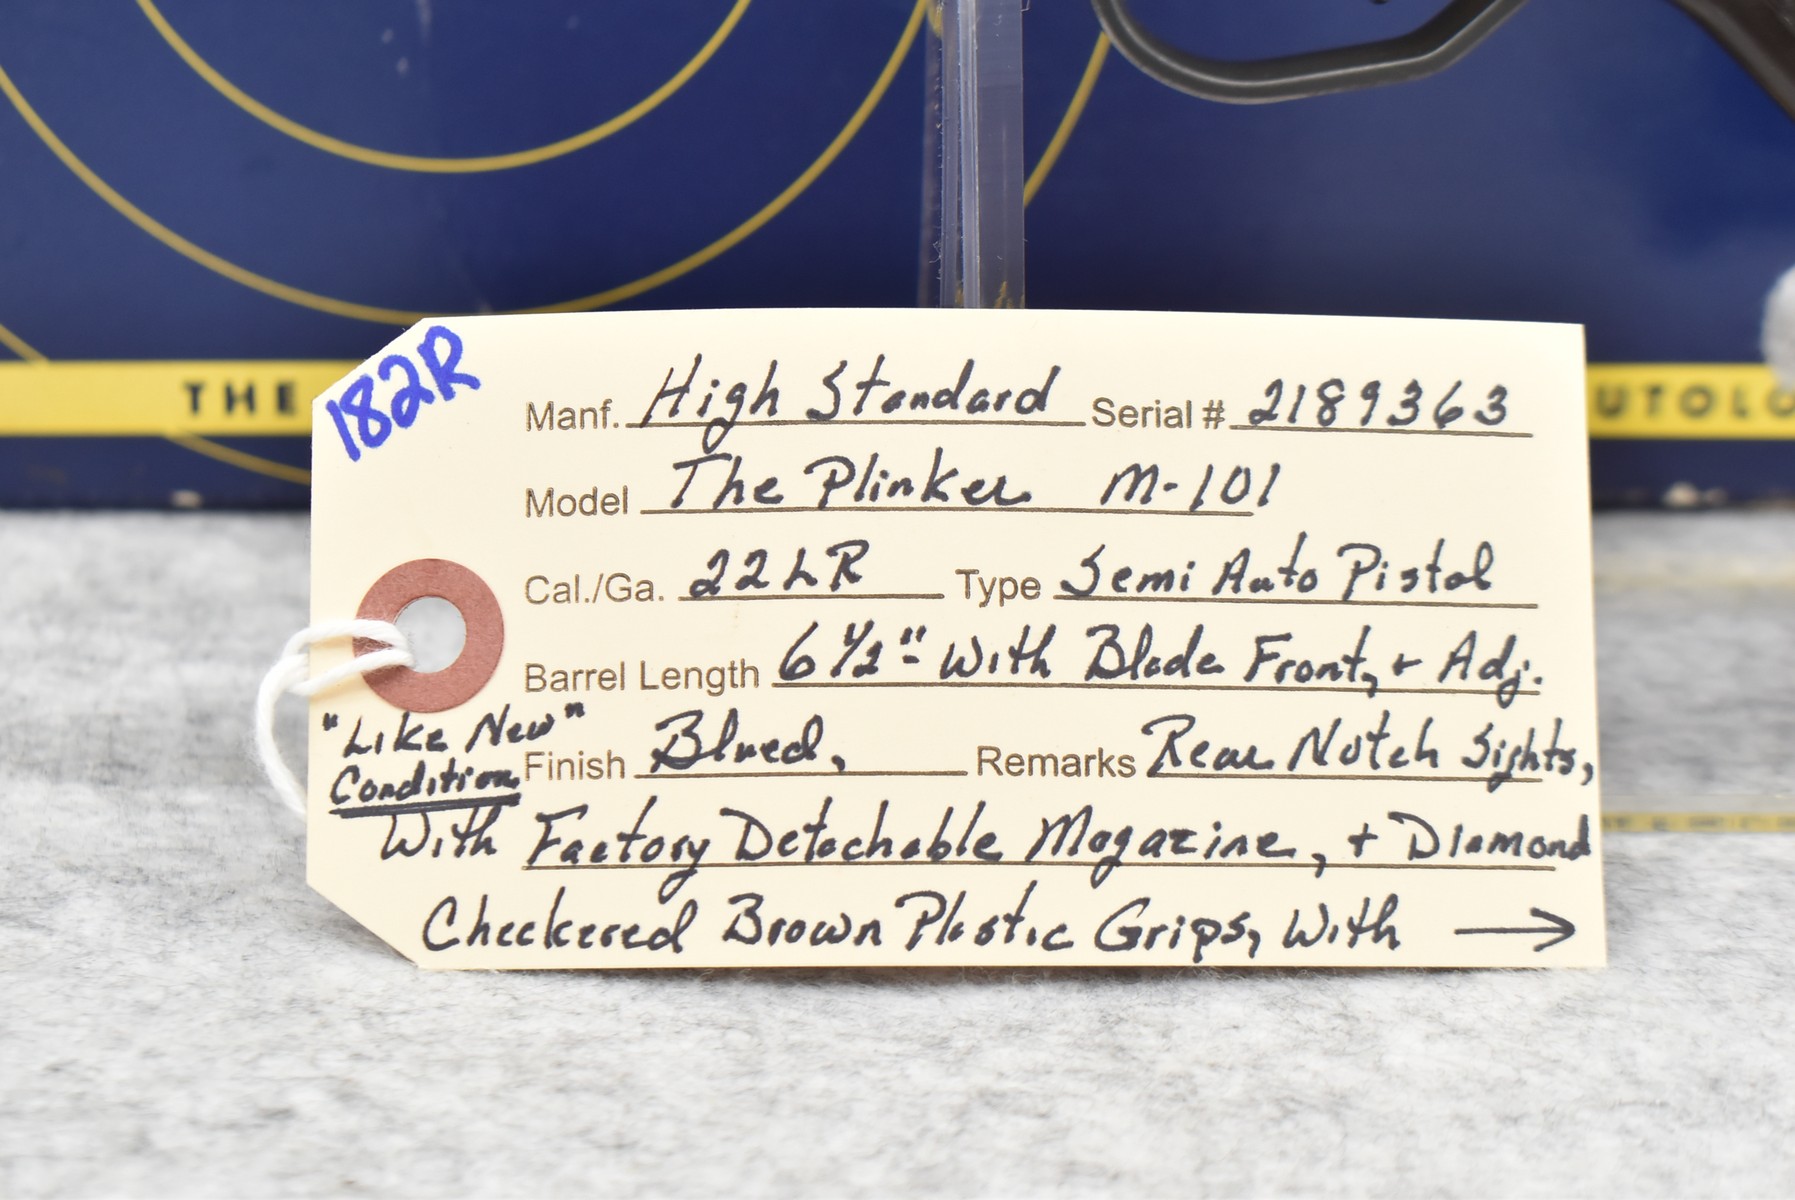 THE
UTOLO
182R
Manf. High Standard Serial # 2189363
Model The Plinker M-101
Cal./Ga. 22LR Type Semi Auto Pistol
Barrel Length 6 1/2" - With Blade Front, + Adj.
"Like New" Condition
Finish Blued, Remarks Rear Notch Sights,
With Factory Detachable Magazine, + Diamond
Checkered Brown Plastic Grips, With →